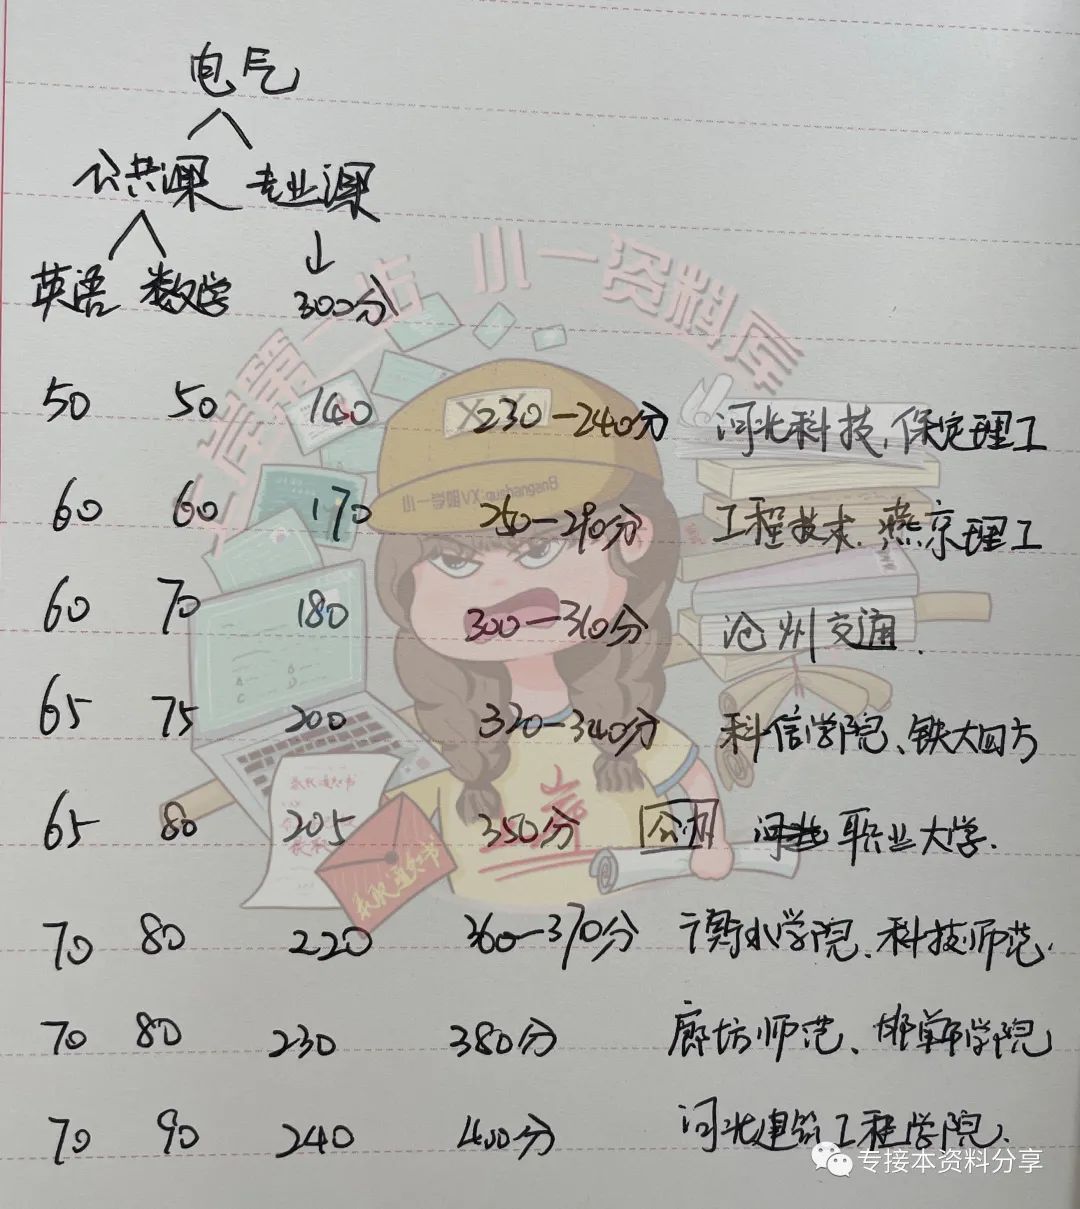 电气
公共课 专业课
英语 数学 300分
上岸第一步 小一资料库
50 50 140 230—240分 河北科技、保定理工
小一学姐VX:qushangan8
60 60 170 250—290分 工程技术、燕京理工
60 70 180 300—310分 沧州交通.
65 75 200 320—340分 科信学院、铁大四方
65 80 205 350分 公办 职业大学.
岸
录取通知书
70 80 220 360—370分 衡水学院、科技师范.
70 80 230 380分 廊坊师范、邯郸学院
70 90 240 400分 河北建筑工程学院.
专接本资料分享